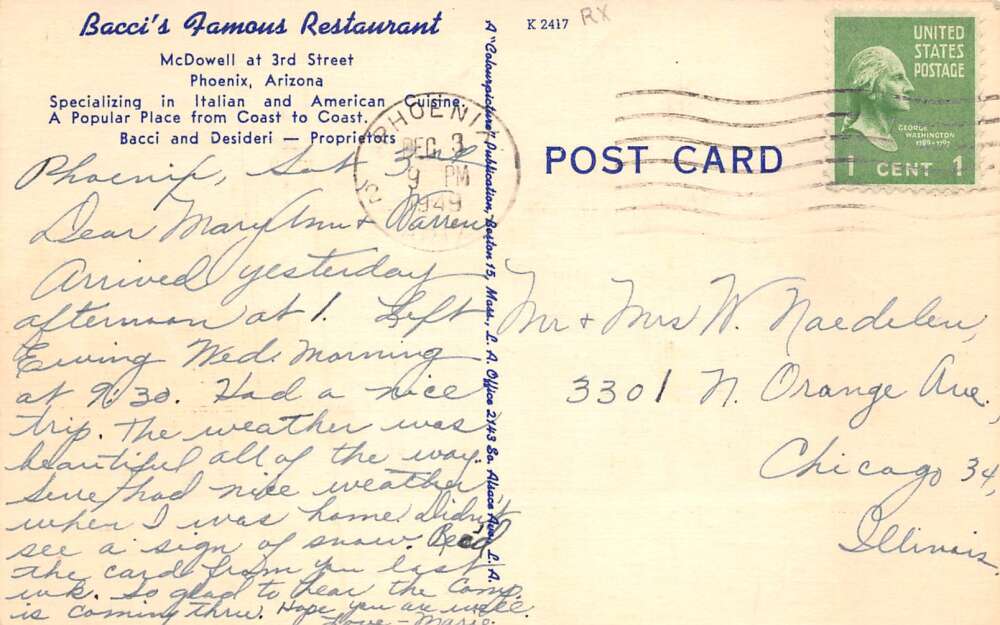 Bacci's Famous Restaurant
McDowell at 3rd Street
Phoenix, Arizona
Specializing in Italian and American Cuisine.
A Popular Place from Coast to Coast.
Bacci and Desideri — Proprietors
Phoenix, Sat 3rd
Dear Maryann + Warren
Arrived yesterday
afternoon at 1. Left
Ewing Wed. Morning
at 9:30. Had a nice
trip. The weather was
beautiful all of the way.
Sure had nice weather
when I was home. Didn't
see a sign of snow. Rec'd
the card from you last
wk. So glad to hear the Comp.
is coming thru. Hope you are well.
Love - Marie.
A "Colourpicture" Publication, Boston 15, Mass., L. A. Office 2143 So. Alsace Ave., L. A.
K 2417
RX
PHOENIX
DEC 3
9 PM
1949
POST CARD
UNITED
STATES
POSTAGE
GEORGE
WASHINGTON
1789-1797
1 CENT 1
Mr + Mrs W. Naedelen,
3301 N. Orange Ave.,
Chicago 34,
Illinois.